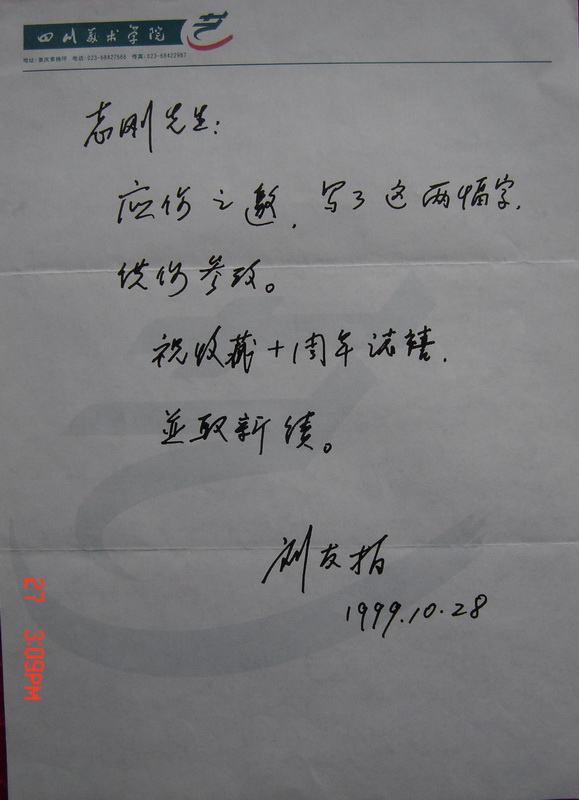 四川美术学院
地址:重庆黄桷坪 电话:023-68427666 传真:023-68422987
志刚先生:
应你之邀,写了这两幅字,
供你参改。
祝收藏十周年诸禧,
並取新绩。
刘友拍
1999.10.28
27 3:09PM